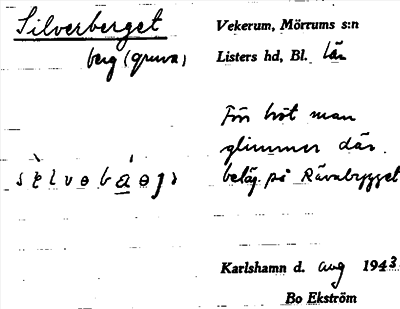 Silverberget
berg (gruva)
Vekerum, Mörrums s:n
Listers hd, Bl. län
Förr bröt man
glimmer där.
beläg. på Rävabygget
Karlshamn d. aug 1943
Bo Ekström